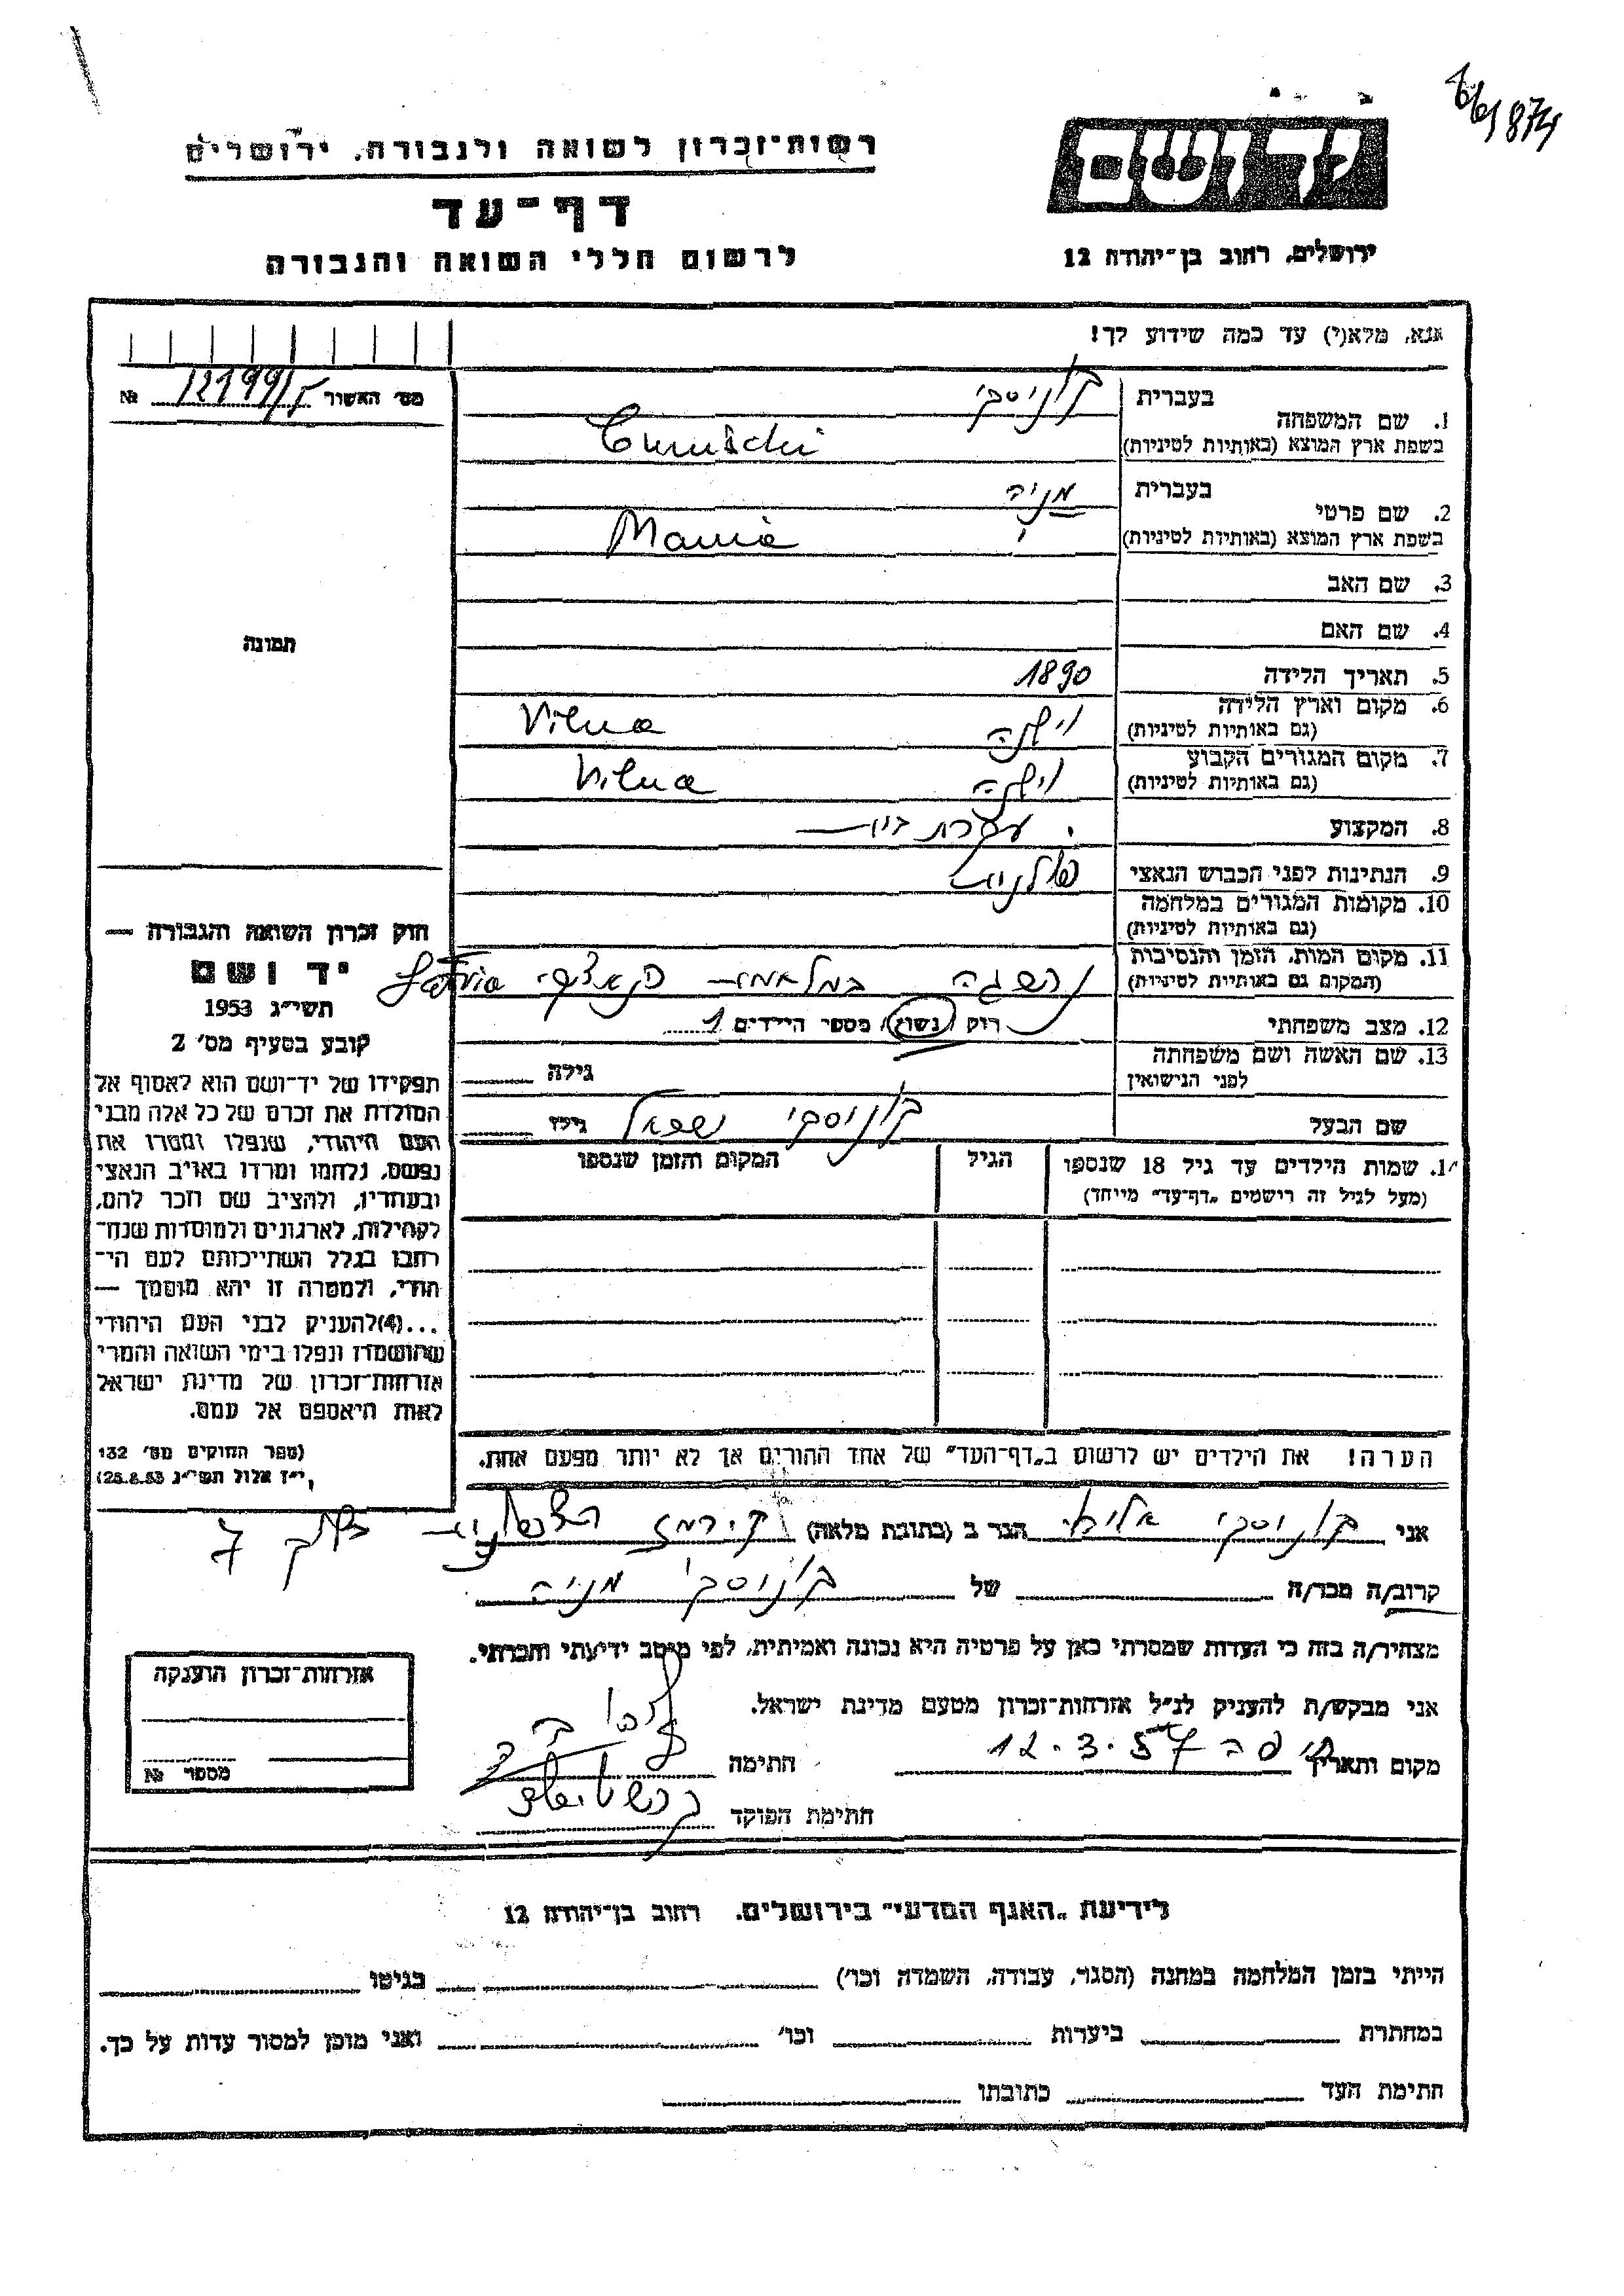 רשות־זכרון לשואה ולגבורה, ירושלים
דף־עד
לרשום חללי השואה והגבורה
יד ושם
ירושלים, רחוב בן־יהודה 12
אנא, מלא(י) עד כמה שידוע לך!
מס' האשור № 12199/I
1. שם המשפחה
בעברית
בשפת ארץ המוצא (באותיות לטיניות)
2. שם פרטי
בעברית מניה
בשפת ארץ המוצא (באותיות לטיניות) Mania
3. שם האב
4. שם האם
5. תאריך הלידה 1890
6. מקום וארץ הלידה (גם באותיות לטיניות) וילנה Vilna
7. מקום המגורים הקבוע (גם באותיות לטיניות) וילנה Vilna
8. המקצוע עקרת בית
9. הנתינות לפני הכבוש הנאצי פולנית
10. מקומות המגורים במלחמה (גם באותיות לטיניות)
11. מקום המות, הזמן והנסיבות (המקום גם באותיות לטיניות) Latvia
12. מצב משפחתי רוק / נשוי / מספר הילדים 1
13. שם האשה ושם משפחתה לפני הנישואין גילה
שם הבעל גילו
תמונה
חוק זכרון השואה והגבורה —
יד ושם
תשי״ג 1953
קובע בסעיף מס' 2
תפקידו של יד־ושם הוא לאסוף אל
המולדת את זכרם של כל אלה מבני
העם היהודי, שנפלו ומסרו את
נפשם, נלחמו ומרדו באויב הנאצי
ובעוזריו, ולהציב שם וזכר להם,
לקהילות, לארגונים ולמוסדות שנח־
רבו בגלל השתייכותם לעם הי־
הודי, ולמטרה זו יהא מוסמך —
...(4) להעניק לבני העם היהודי
שהושמדו ונפלו בימי השואה והמרי
אזרחות־זכרון של מדינת ישראל
לאות היאספם אל עמם.
(ספר החוקים מס' 132
י״ז אלול תשי״ג 28.8.53)
14. שמות הילדים עד גיל 18 שנספו
(מעל לגיל זה רישמים „דף־עד” מייחד)
הגיל
המקום והזמן שנספו
הערה! את הילדים יש לרשום ב„דף־העד” של אחד ההורים אך לא יותר מפעם אחת.
אני הגר ב (כתובת מלאה)
קרוב/ה מכר/ה של מניה
מצהיר/ה בזה כי העדות שמסרתי כאן על פרטיה היא נכונה ואמיתית, לפי מיטב ידיעתי והכרתי.
אני מבקש/ת להעניק לנ״ל אזרחות־זכרון מטעם מדינת ישראל.
מקום ותאריך חיפה 12.3.57 חתימה
חתימת הפוקד
אזרחות־זכרון הוענקה
מספר №
לידיעת „האגף המדעי” בירושלים, רחוב בן־יהודה 12
הייתי בזמן המלחמה במחנה (הסגר, עבודה, השמדה וכו') בגיטו
במחתרת ביערות וכו' ואני מוכן למסור עדות על כך.
חתימת העד כתובתו